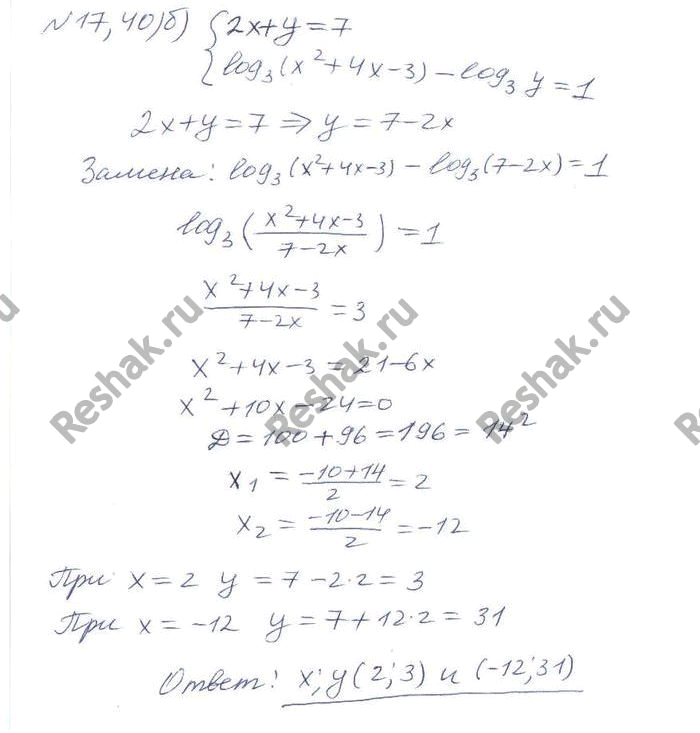 N17,40)б) { 2x+y=7
log₃(x²+4x-3)-log₃ y=1
2x+y=7 ⇒ y=7-2x
Замена: log₃(x²+4x-3)-log₃(7-2x)=1
log₃((x²+4x-3)/(7-2x))=1
(x²+4x-3)/(7-2x)=3
x²+4x-3=21-6x
x²+10x-24=0
Д=100+96=196=14²
x₁=(-10+14)/2=2
x₂=(-10-14)/2=-12
При x=2 y=7-2·2=3
При x=-12 y=7+12·2=31
Ответ: x;y(2;3) и (-12;31)
Reshak.ru
Reshak.ru
Reshak.ru
Reshak.ru